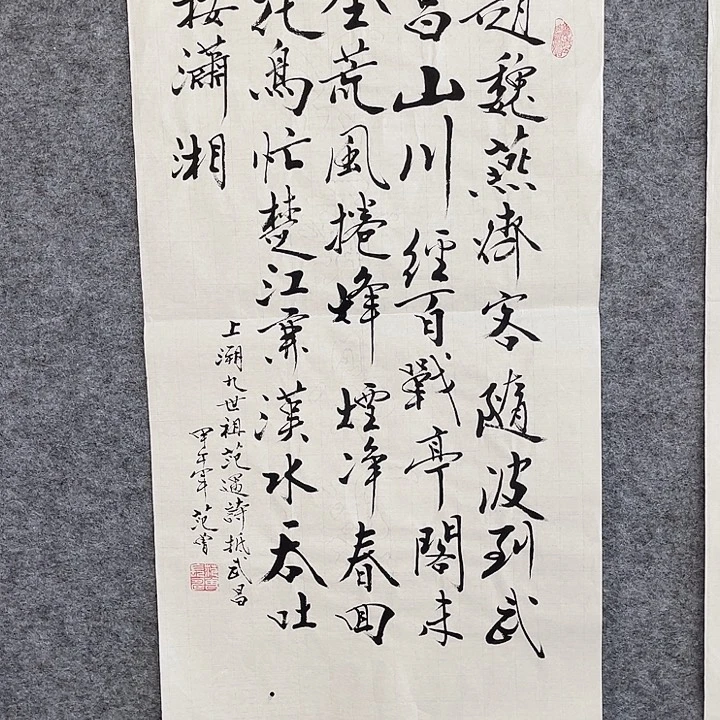 趙魏燕齊客隨波到武
昌山川經百戰亭閣未
全荒風捲烽煙淨春回
花鳥忙楚江兼漢水吞吐
接瀟湘
上溯九世祖范遇詩抵武昌
甲午年 范曾